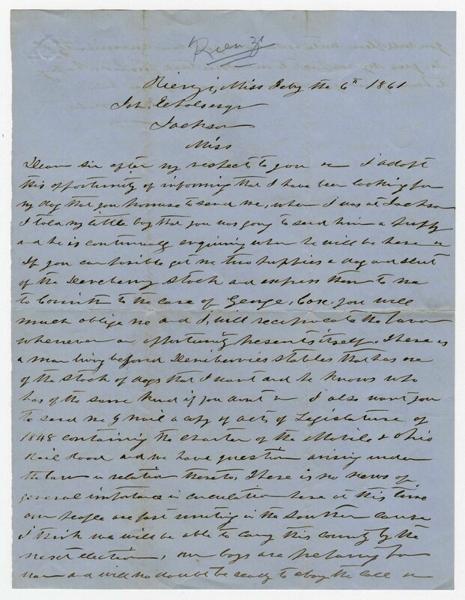 Rienzi
Rienzi, Miss Feby the 6th 1861
Joh Echols esqr
Jackson
Miss
Dear sir after my respects to you I adopt
this opportunity of informing that I have been looking for
my dog that you promise to send me, when I was at Jackson
I told my little boy that you was going to send him a puppy
and he is continually enquiring when he will be here
If you can possible get me two puppies a dog and slut
of the stock and express them to me
to Corinth to the care of George, Cox, you will
much oblige me and I will reciprocate the favor
whenever an opportunity presents itself. There is
a man living beyond stables that has one
of the stock of dogs that I want and he knows who
has of the same kind if you want I also want you
to send me by mail a copy of acts of Legislature of
1848 containing the charter of the Mobile & Ohio
Rail Road and we have question arising under
the law in relation thereto. There is no news of
general importance in circulation here at this time
our people are fast uniting in the Southern cause
I think we will be able to carry this county by the
next election, our boys are preparing for
war and will no doubt be ready to obey the call